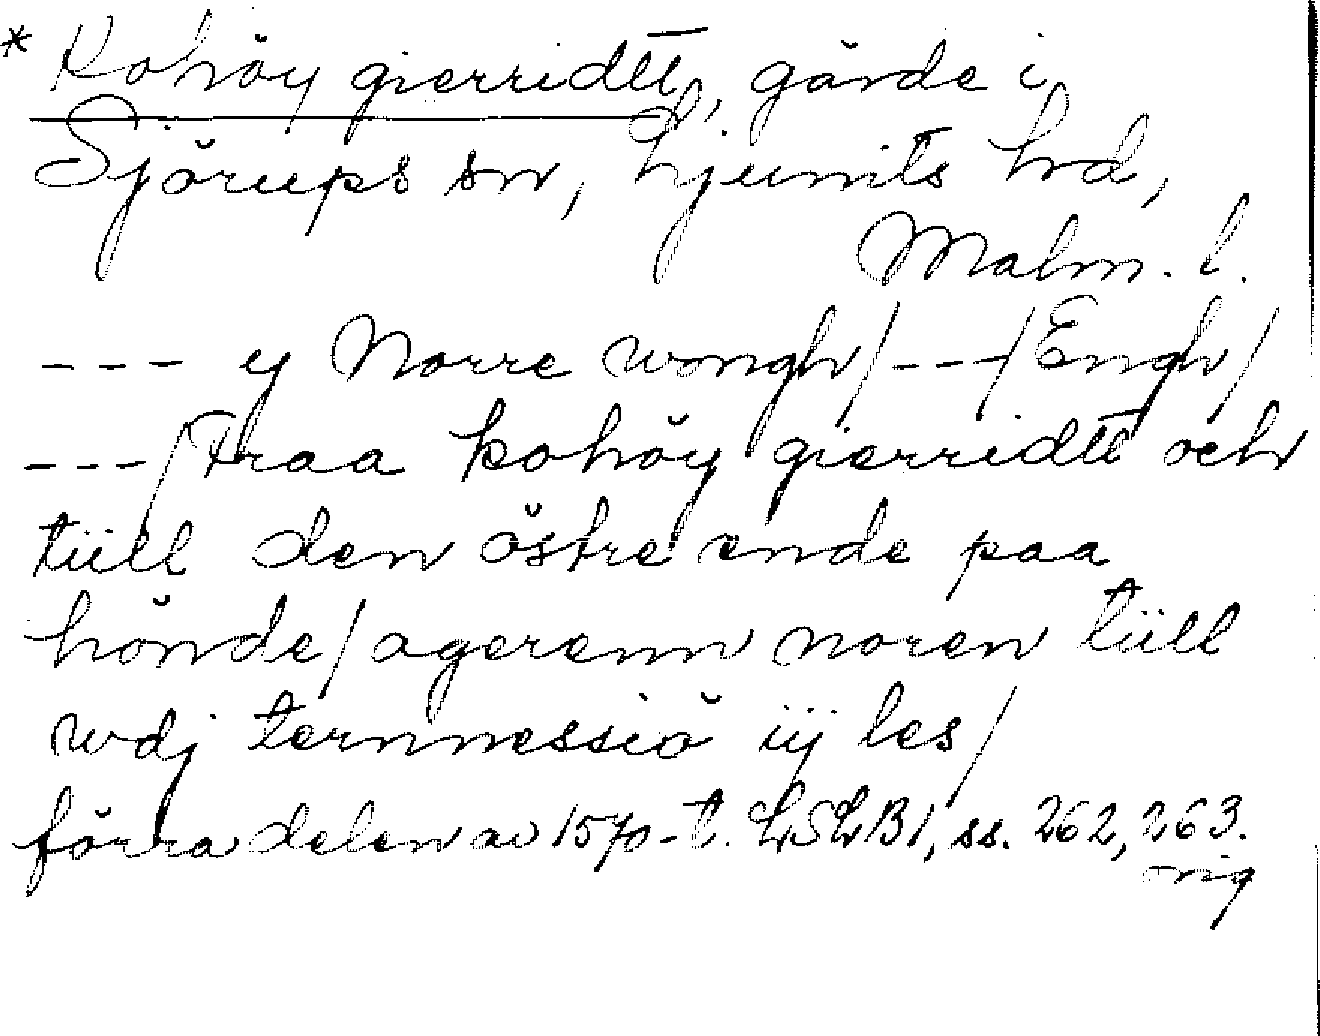 * Kohöy gierridtt, gärde i
Sjörups sn, Ljunits hd,
Malm. l.
--- y Norre wongh/---/Engh/
---/Fraa kohöy gierridtt och
tüll den östre ende paa
hönde/agerenn noren tüll
wdj ternnessiö iij les/
förra delen av 1570-t. LSLB1, ss. 262, 263.
orig